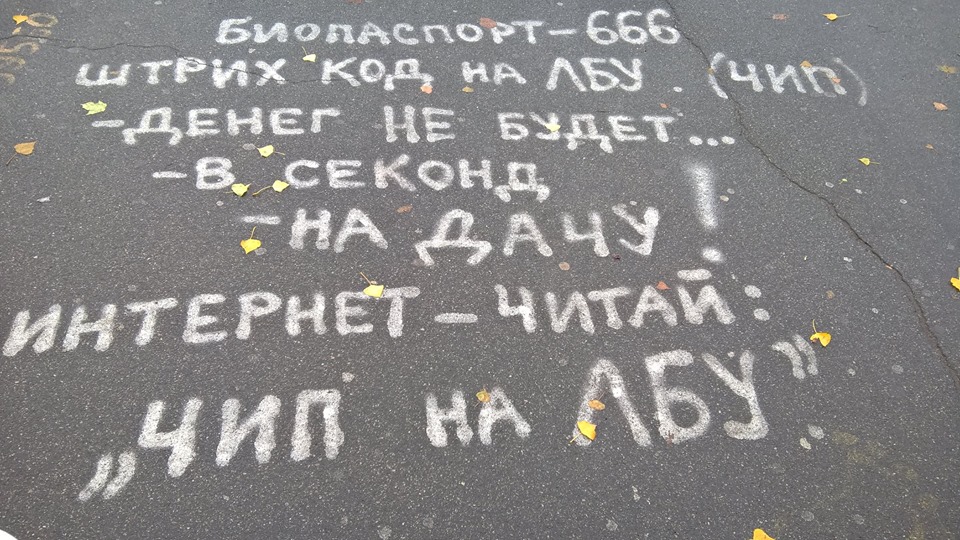 БИОПАСПОРТ – 666
ШТРИХ КОД НА ЛБУ. (ЧИП)
– ДЕНЕГ НЕ БУДЕТ...
– В СЕКОНД
– НА ДАЧУ!
ИНТЕРНЕТ – ЧИТАЙ:
„ЧИП НА ЛБУ”.